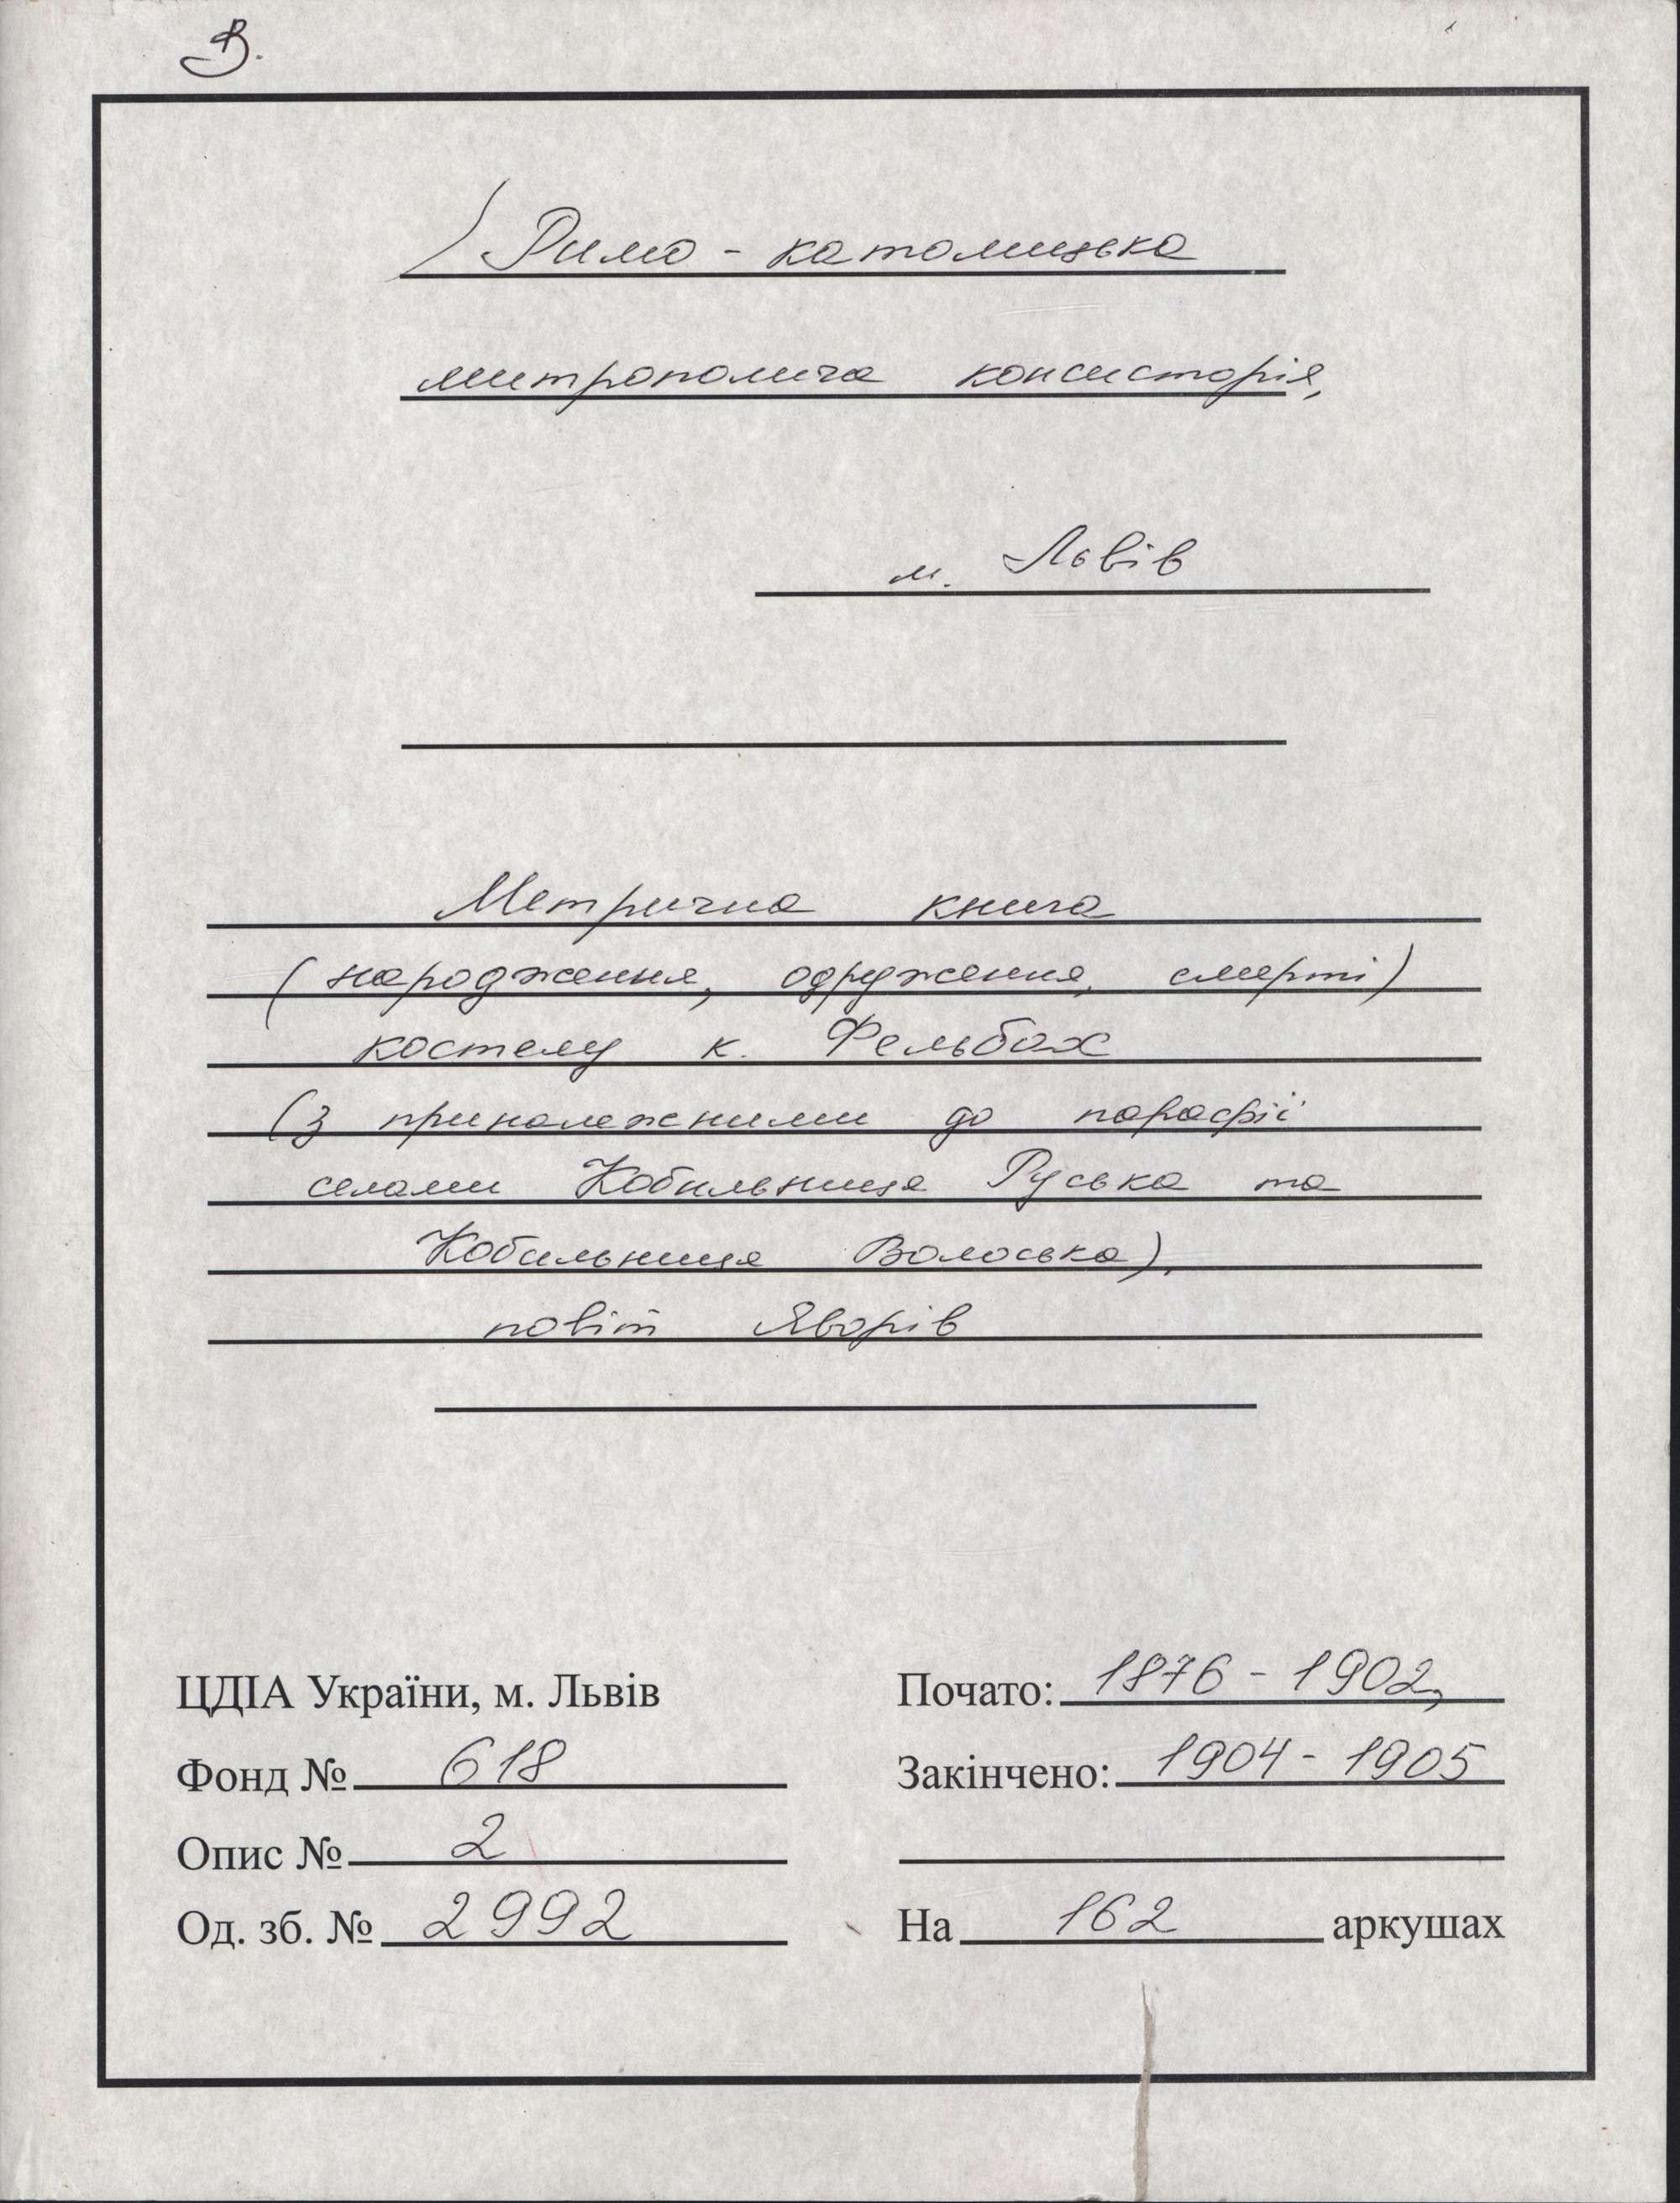 В.
Римо - католицька
митрополича консисторія,
м. Львів
Метрична книга
(народження, одруження, смерті)
костелу к. Фельбах
(з приналежними до парафії
селами Кобильниця Руська та
Кобильниця Волоська),
повіт Яворів
ЦДІА України, м. Львів
Фонд № 618
Опис № 2
Од. зб. № 2992
Почато: 1876 - 1902,
Закінчено: 1904 - 1905
На 162 аркушах